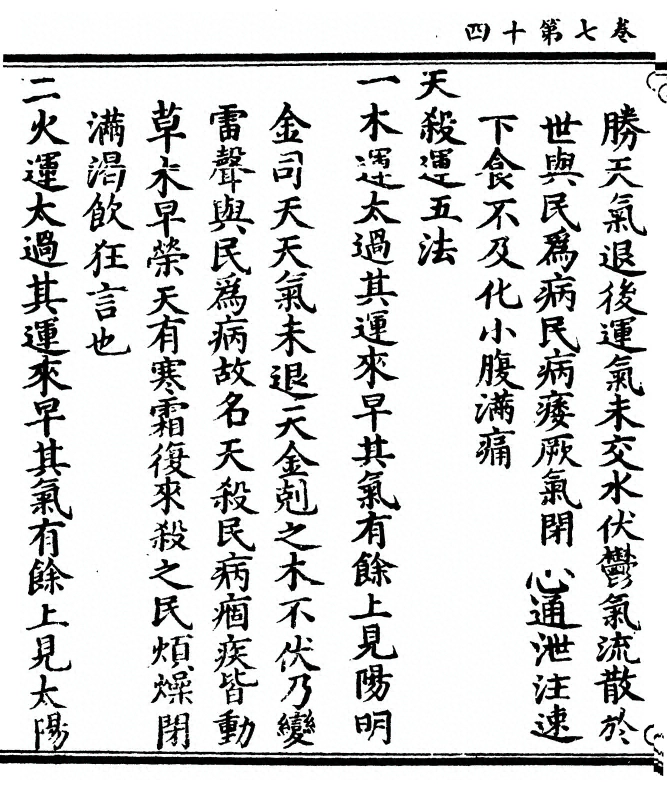 卷七第十四
勝天氣退後運氣未交水伏鬱氣流散於
世與民爲病民病痿厥氣閉心通泄注速
下食不及化小腹滿痛
天殺運五法
一木運太過其運來早其氣有餘上見陽明
金司天天氣未退天金剋之木不伏乃變
雷聲與民爲病故名天殺民病痼疾皆動
草木早榮天有寒霜復來殺之民煩燥閉
滿渴飲狂言也
二火運太過其運來早其氣有餘上見太陽